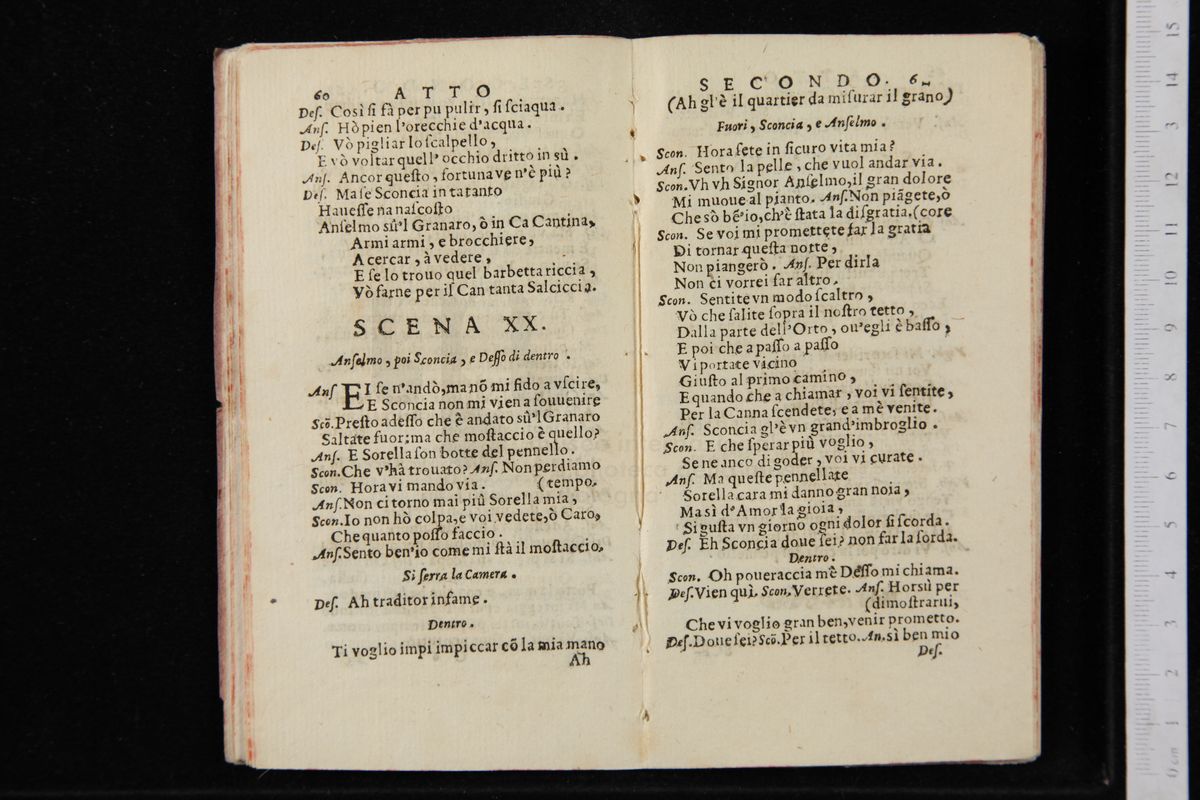 60 ATTO
Des. Così ſi fà per pu pulir, ſi ſciaqua.
Anſ. Hò pien l'orecchie d'acqua.
Deſ. Vò pigliar lo ſcalpello,
E vò voltar quell' occhio dritto in sù.
Anſ. Ancor queſto, fortuna ve n'è più?
Deſ. Ma ſe Sconcia in ta tanto
Haueſſe na naſcoſto
Anſelmo sù'l Granaro, ò in Ca Cantina,
Armi armi, e brocchiere,
A cercar, à vedere,
E ſe lo trouo quel barbetta riccia,
Vò farne per il Can tanta Salciccia.
SCENA XX.
Anſelmo, poi Sconcia, e Deſſo di dentro.
Anſ EI ſe n'andò, ma nō mi fido a vſcire,
E Sconcia non mi vien a ſouuenire
Scō. Preſto adeſſo che è andato sù'l Granaro
Saltate fuor; ma che moſtaccio è quello?
Anſ. E Sorella ſon botte del pennello.
Scon. Che v'hà trouato? Anſ. Non perdiamo
Scon. Hora vi mando via. (tempo.
Anſ. Non ci torno mai più Sorella mia,
Scon. Io non hò colpa, e voi vedete, ò Caro,
Che quanto poſſo faccio.
Anſ. Sento ben'io come mi ſtà il moſtaccio.
Si ſerra la Camera.
Deſ. Ah traditor infame.
Dentro.
Ti voglio impi impiccar cō la mia mano
Ah
SECONDO. 6
(Ah gl'è il quartier da miſurar il grano)
Fuori, Sconcia, e Anſelmo.
Scon. Hora ſete in ſicuro vita mia?
Anſ. Sento la pelle, che vuol andar via.
Scon. Vh vh Signor Anſelmo, il gran dolore
Mi muoue al pianto. Anſ. Non piāgete, ò
Che sò bē'io, ch'è ſtata la diſgratia. (core
Scon. Se voi mi promettete far la gratia
Di tornar queſta notte,
Non piangerò. Anſ. Per dirla
Non ci vorrei far altro.
Scon. Sentite vn modo ſcaltro,
Vò che ſalite ſopra il noſtro tetto,
Dalla parte dell'Orto, ou'egli è baſſo,
E poi che a paſſo a paſſo
Vi portate vicino
Giuſto al primo camino,
E quando che a chiamar, voi vi ſentite,
Per la Canna ſcendete, e a mè venite.
Anſ. Sconcia gl'è vn grand'imbroglio.
Scon. E che ſperar più voglio,
Se ne anco di goder, voi vi curate.
Anſ. Ma queſte pennellate
Sorella cara mi danno gran noia,
Ma sì d'Amor la gioia,
Si guſta vn giorno ogni dolor ſi ſcorda.
Deſ. Eh Sconcia doue ſei? non far la ſorda.
Dentro.
Scon. Oh poueraccia mè Deſſo mi chiama.
Deſ. Vien quì. Scon. Verrete. Anſ. Horsù per
(dimoſtrarui,
Che vi voglio gran ben, venir prometto.
Deſ. Doue ſei? Scō. Per il tetto. An. sì ben mio
Deſ.